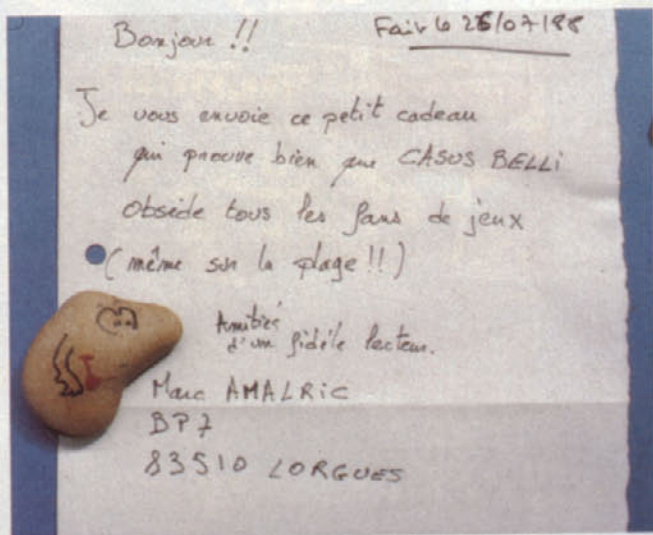 Bonjour !!
Fait le 26/07/88
Je vous envoie ce petit cadeau
qui prouve bien que CASUS BELLi
obsède tous les fans de jeux
(même sur la plage !!)
Amitiés
d'un fidèle lecteur.
Marc AMALRiC
BP7
83510 LORGUES